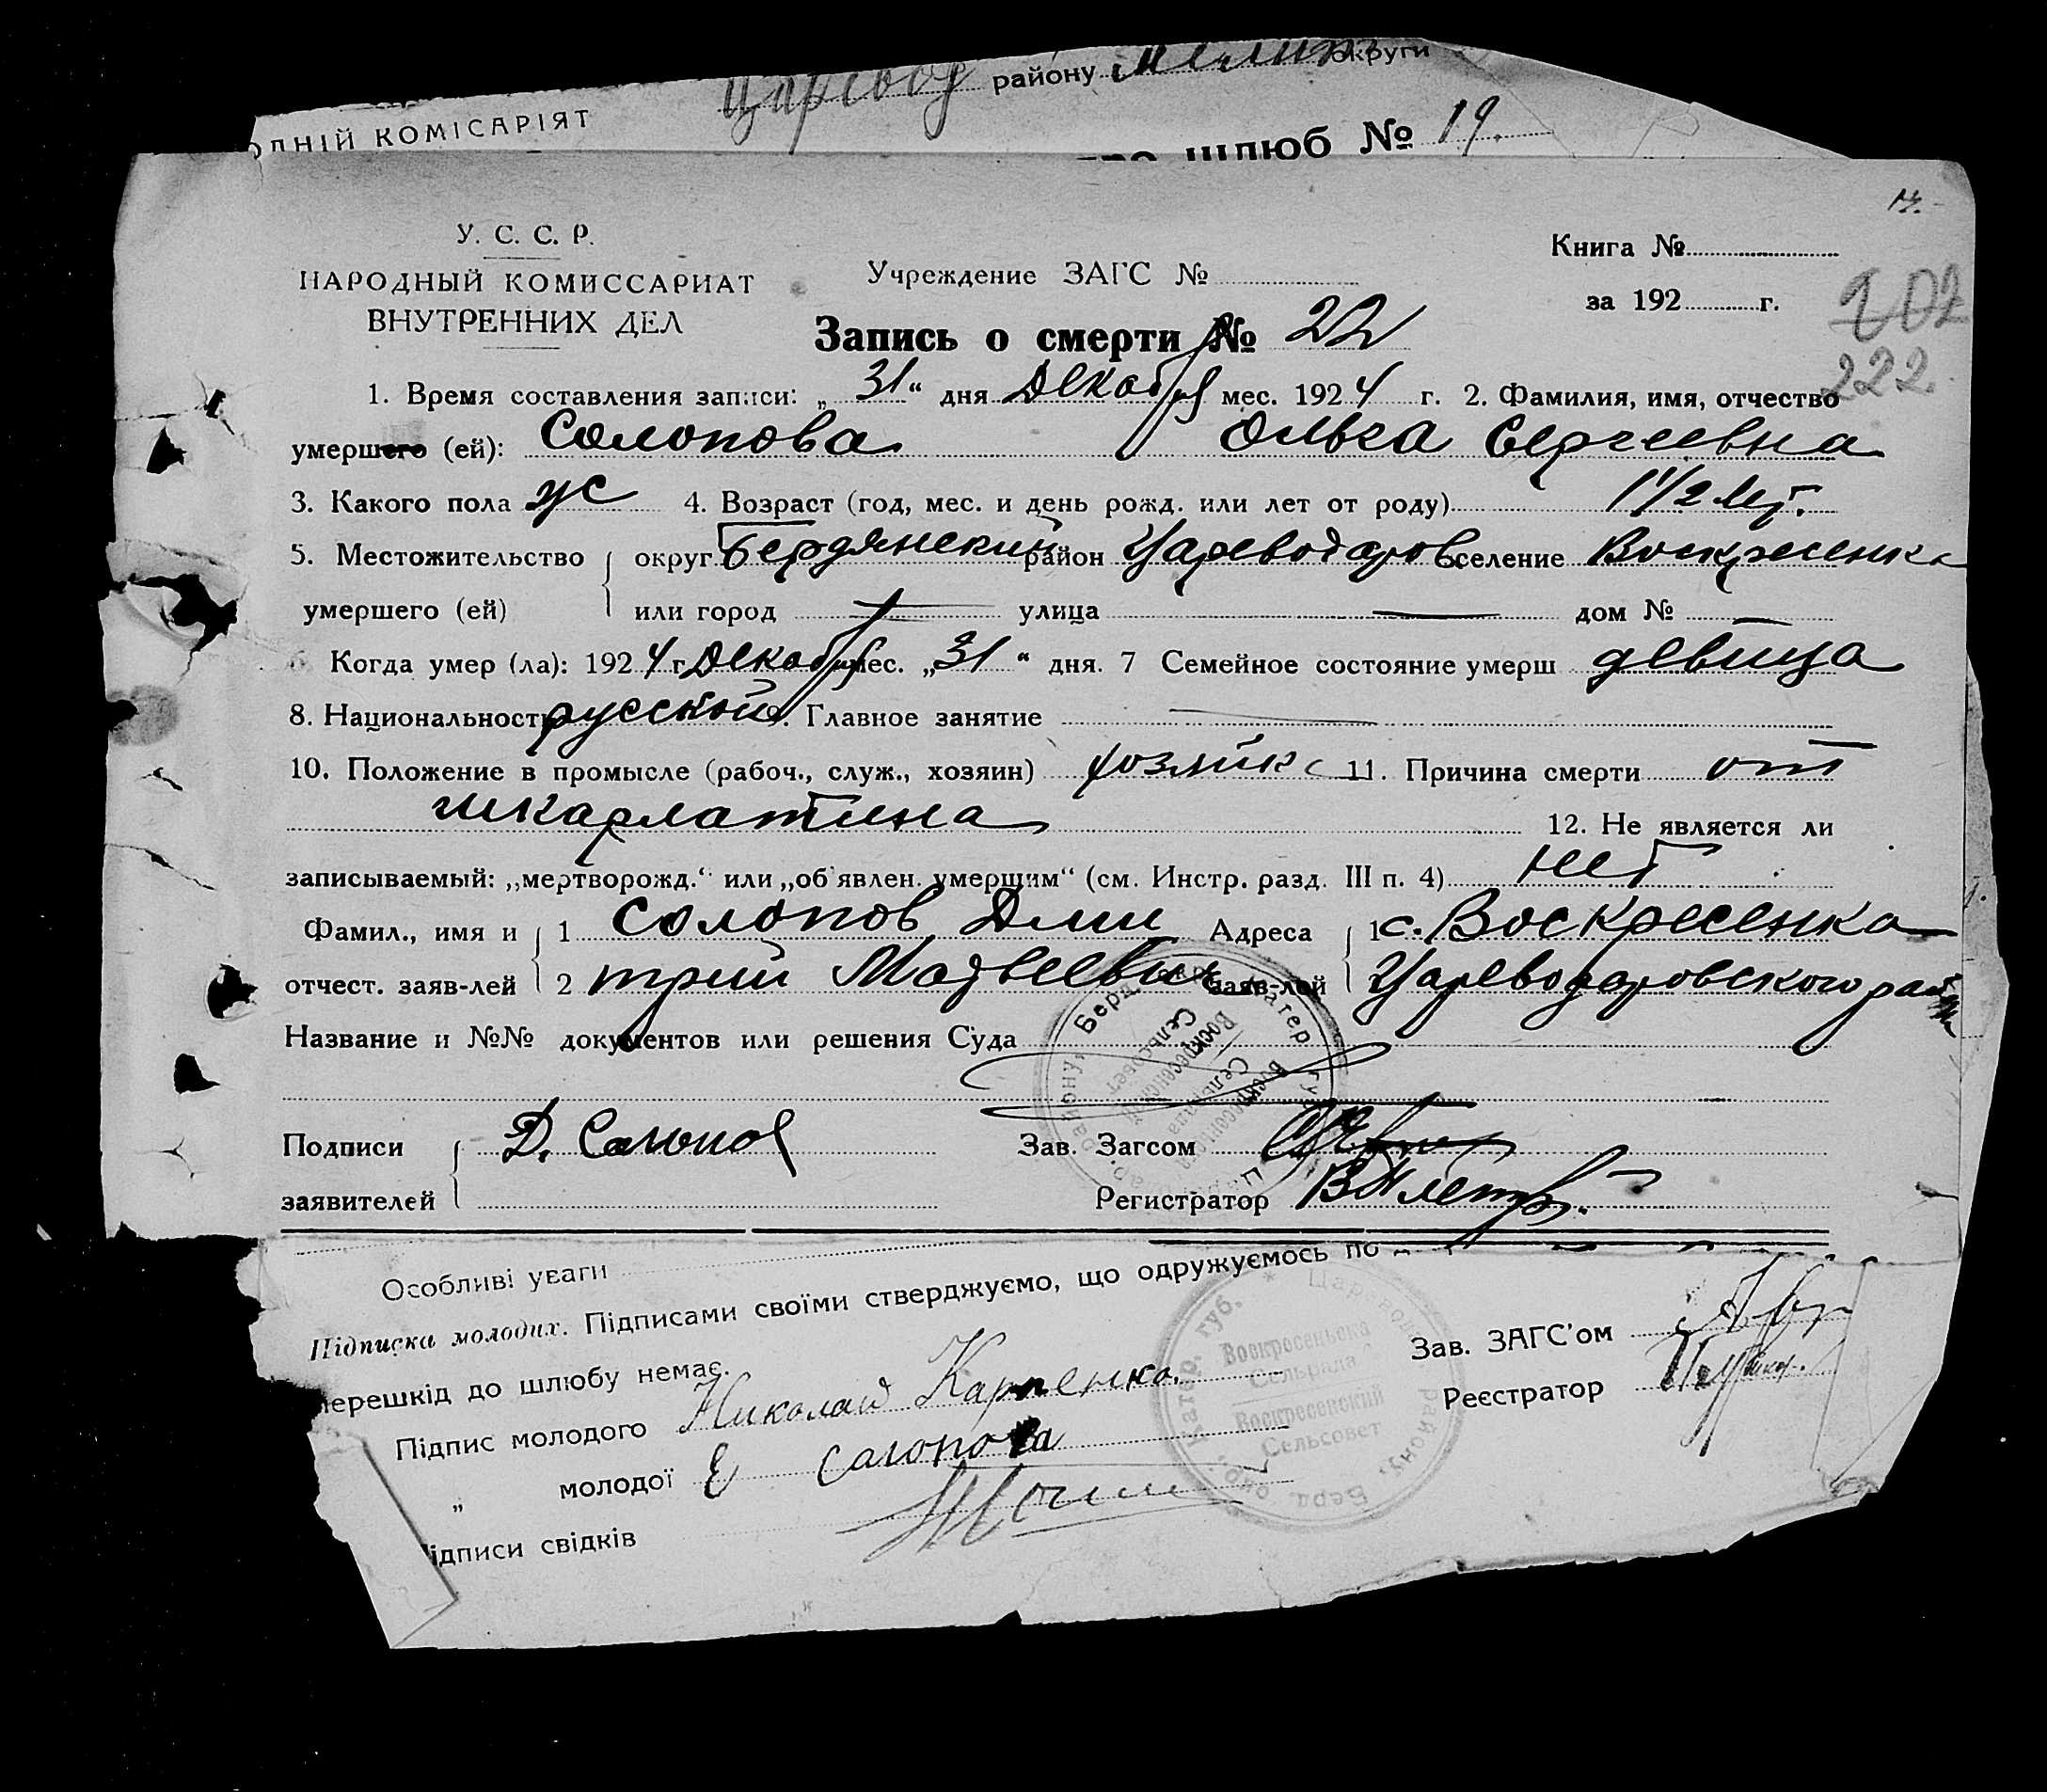 району округи
ОДНІЙ КОМІСАРІЯТ
шлюб № 19.
У. С. С. Р.
НАРОДНЫЙ КОМИССАРИАТ
ВНУТРЕННИХ ДЕЛ
Учреждение ЗАГС №
Книга №
за 192 г.
202
222.
Запись о смерти № 22
1. Время составления записи: „ 31 “ дня Декабря мес. 1924 г. 2. Фамилия, имя, отчество
умершего (ей): Солопова Ольга Сергеевна
3. Какого пола ж 4. Возраст (год, мес. и день рожд. или лет от роду) 1 1/2 лет.
5. Местожительство округ Бердянский район Цареводаровс селение Воскресенка
умершего (ей) или город — улица — дом № —
6 Когда умер (ла): 1924 г. Декабря мес. „31“ дня. 7 Семейное состояние умерш девица
8. Национальность русской 9. Главное занятие —
10. Положение в промысле (рабоч., служ., хозяин) хозяйка 11. Причина смерти от
шкарлатина 12. Не является ли
записываемый: „мертворожд.“ или „об'явлен. умершим“ (см. Инстр. разд. III п. 4) нет
Фамил., имя и 1 Солопов Дми Адреса 1 с. Воскресенка
отчест. заяв-лей 2 трий Матвеевич заяв-лей Цареводаровского район
Название и №№ документов или решения Суда
Подписи Д. Солопов Зав. Загсом
заявителей Регистратор
Особливі уваги
Підписка молодих. Підписами своїми стверджуємо, що одружуємось по
перешкід до шлюбу немає.
Зав. ЗАГС'ом
Підпис молодого Николай Карпенко. Реєстратор
„ молодої Е Солопова
Підписи свідків
Воскресенська
Сельрада
Воскресенский
Сельсовет